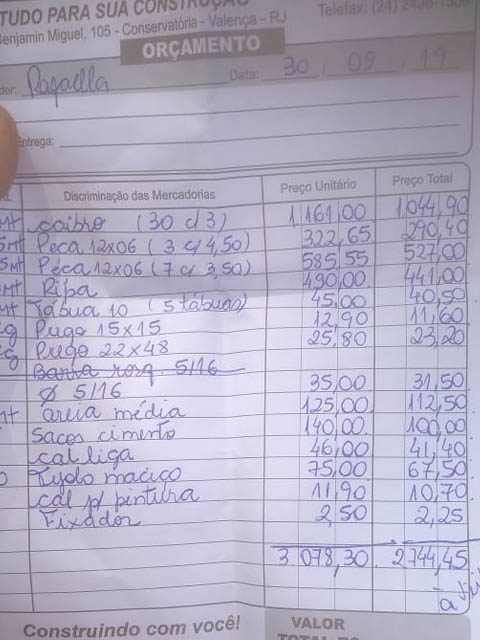 TUDO PARA SUA CONSTRUÇÃO
Benjamin Miguel, 105 - Conservatória - Valença - RJ
Telefax: (24) 2438-1308
ORÇAMENTO
dor: Rafaella Data: 30 . 09 . 19
Entrega:
Discriminação das Mercadorias Preço Unitário Preço Total
Mt caibro (30 c/3) 1.161,00 1.044,90
5Mt Peca 12x06 (3 c/4,50) 322,65 290,40
5Mt Péca 12x06 (7 c/3,50) 585,55 527,00
Mt Ripa 490,00 441,00
Mt Tábua 10 (5 tábuas) 45,00 40,50
Kg Prego 15x15 12,90 11,60
Kg Prego 22x48 25,80 23,20
Barra rosq. 5/16
Ø 5/16 35,00 31,50
Mt areia média 125,00 112,50
Sacos cimento 140,00 100,00
cal liga 46,00 41,40
Tijolo maciço 75,00 67,50
cal p/ pintura 11,90 10,70
Fixador 2,50 2,25
3 078,30 2.744,45
Construindo com você!
VALOR